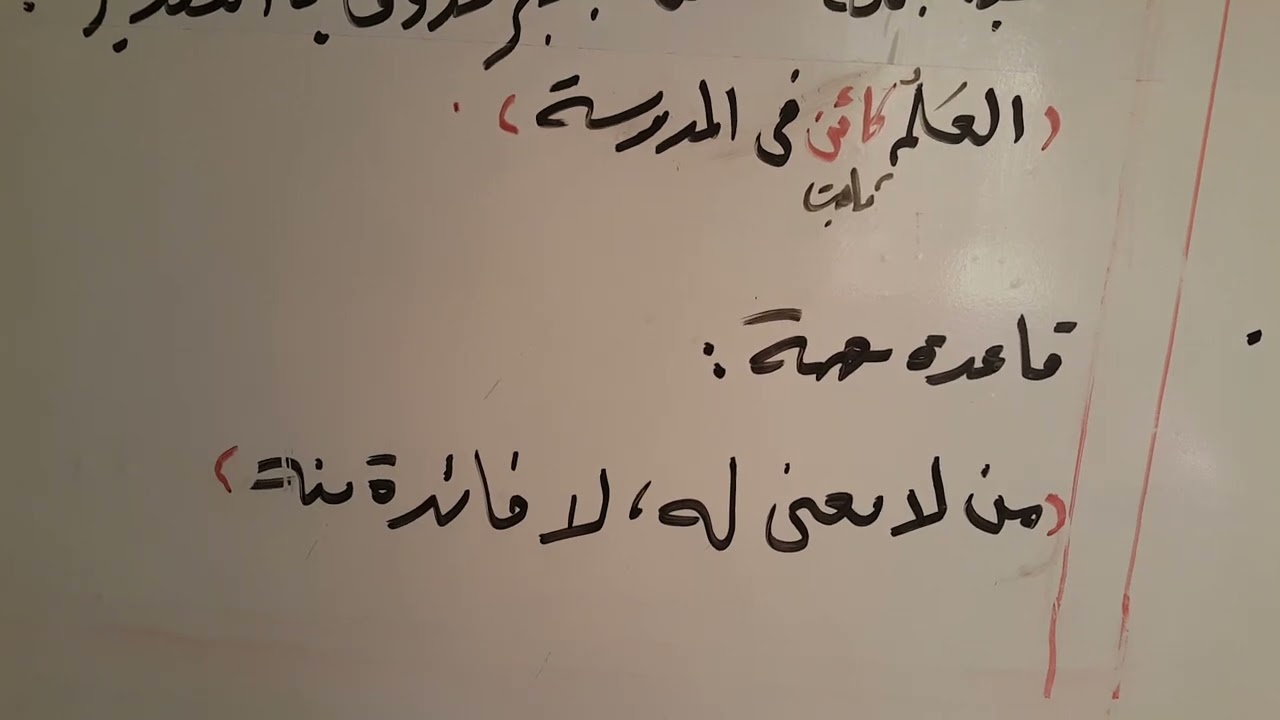 (العَلَمُ كائن في المدرسة) .
ثابت
قاعدة مهمة :
(من لا معنى له، لا فائدة منه)